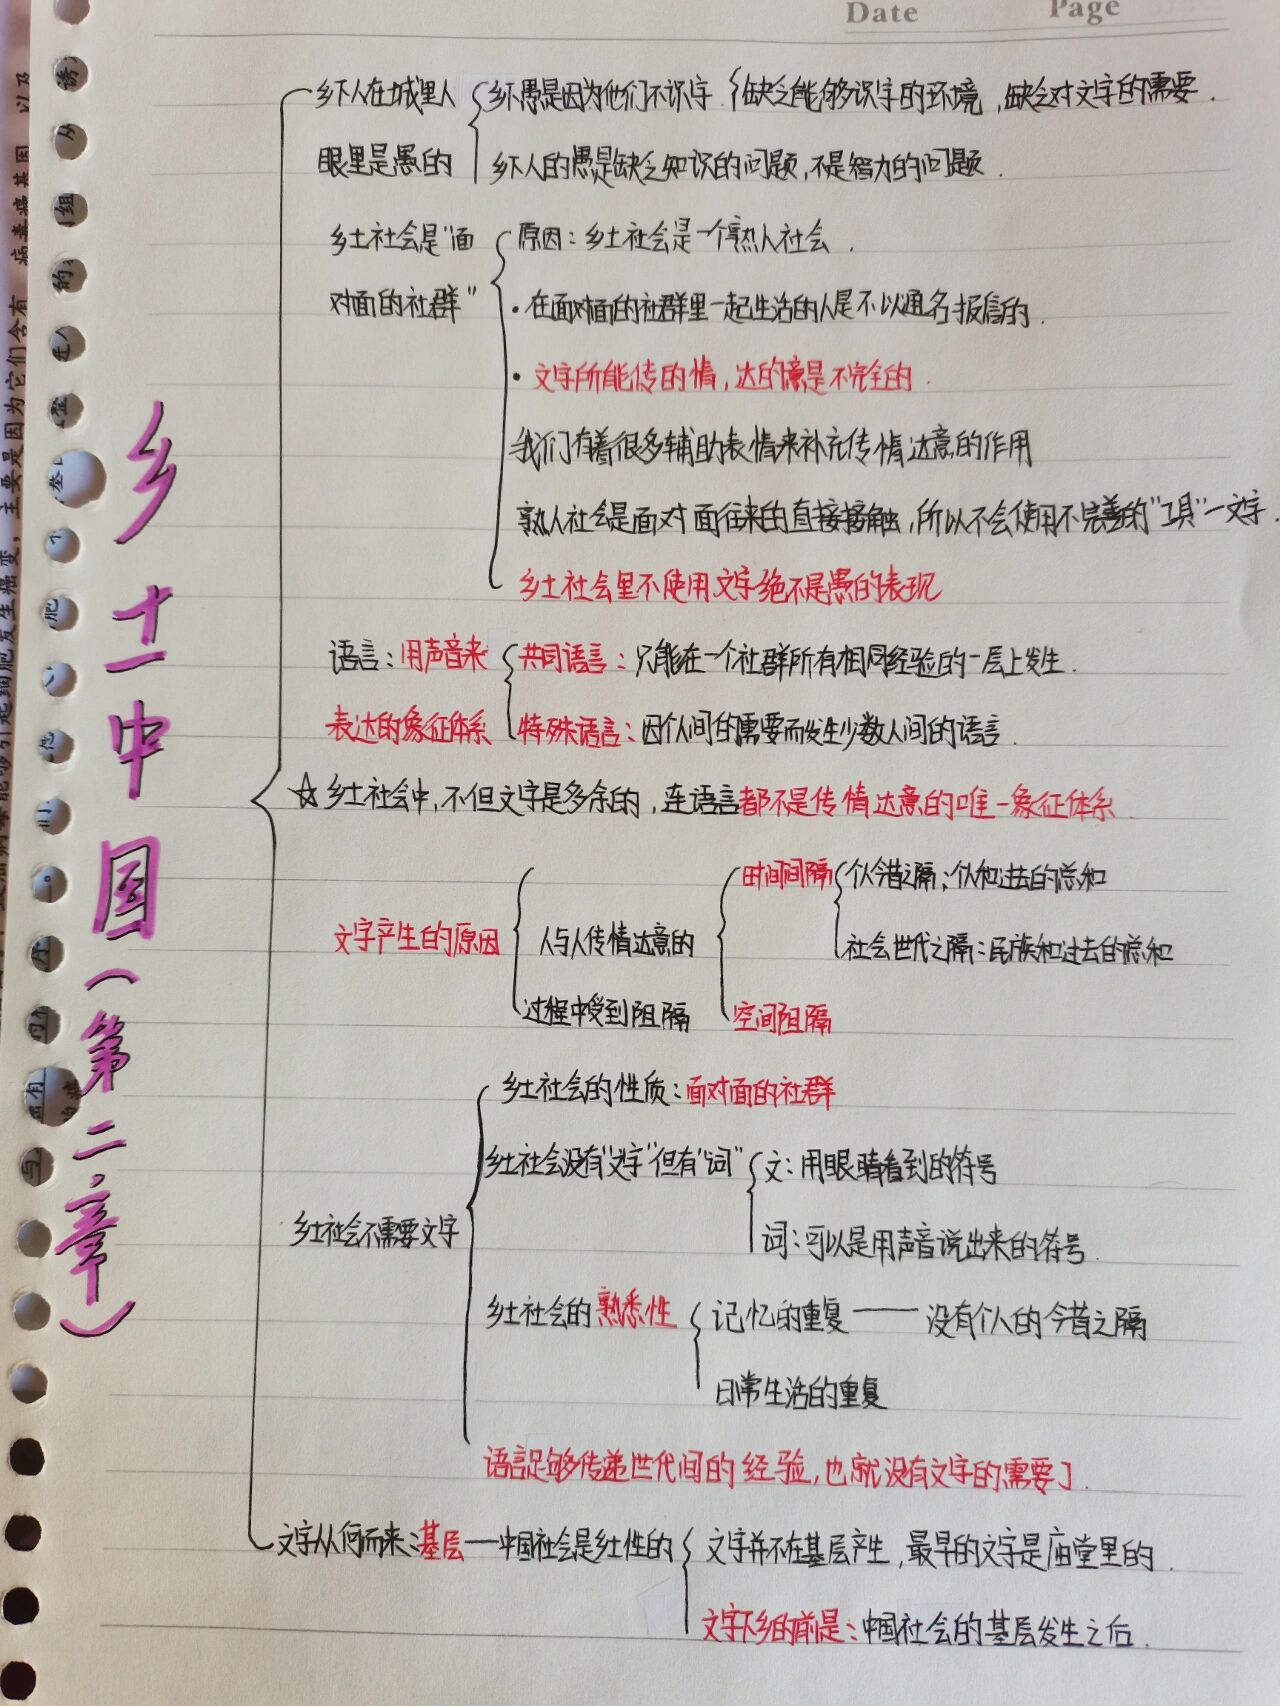 Date Page
乡土中国(第二章)
乡下人在城里人
眼里是愚的
乡下愚是因为他们不识字.
缺乏能够识字的环境,缺乏对文字的需要.
乡下人的愚是缺乏知识的问题,不是智力的问题.
乡土社会是"面
对面的社群"
原因:乡土社会是一个熟人社会.
·在面对面的社群里一起生活的人是不以通名报信的.
·文字所能传的情,达的意是不完全的.
我们有着很多辅助表情来补充传情达意的作用
熟人社会是面对面往来的直接接触,所以不会使用不完善的"工具"一文字.
乡土社会里不使用文字绝不是愚的表现
语言:用声音来
表达的象征体系
共同语言:只能在一个社群所有相同经验的一层上发生.
特殊语言:因个人间的需要而发生少数人间的语言.
☆乡土社会中,不但文字是多余的,连语言都不是传情达意的唯一象征体系.
文字产生的原因
人与人传情达意的
过程中受到阻隔
时间间隔
个人今昔之隔:个人和过去的总和
社会世代之隔:民族和过去的总和
空间阻隔
乡土社会不需要文字
乡土社会的性质:面对面的社群
乡土社会没有"文字"但有"词"
文:用眼睛看到的符号
词:可以是用声音说出来的符号.
乡土社会的熟悉性
记忆的重复——没有个人的今昔之隔
日常生活的重复
语言足够传递世代间的经验,也就没有文字的需要了.
文字从何而来:基层—中国社会是乡土性的
文字并不在基层产生,最早的文字是庙堂里的.
文字下乡的前是:中国社会的基层发生之后.